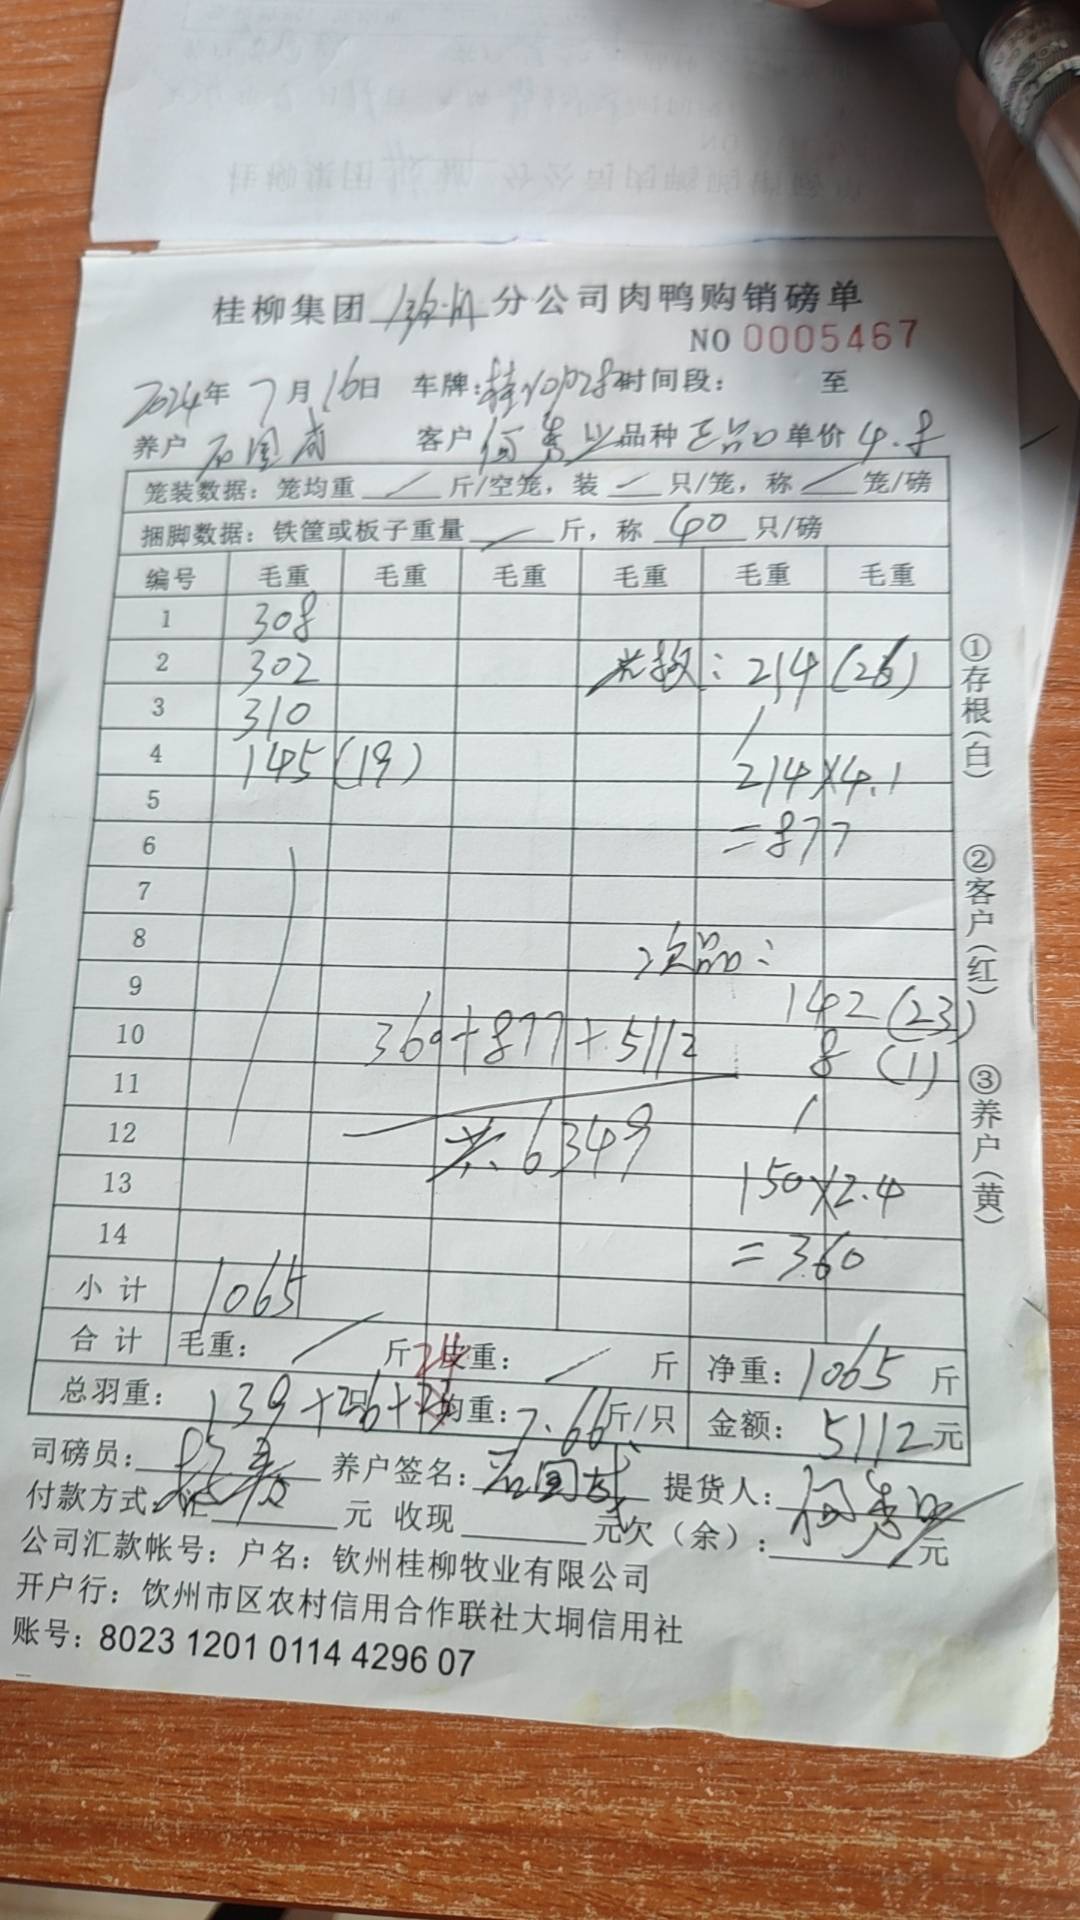 桂柳集团 分公司肉鸭购销磅单
NO 0005467
2024年 7月 16日 车牌: 时间段: 至
养户 石国成 客户 何秀 品种 正品 单价 4.8
笼装数据: 笼均重 / 斤/空笼, 装 / 只/笼, 称 / 笼/磅
捆脚数据: 铁筐或板子重量 / 斤, 称 40 只/磅
编号 毛重 毛重 毛重 毛重 毛重 毛重
1 308
2 302 光教: 214 (26)
3 310
4 145 (19) 214×4.1
5
6 =877
7
8 次品:
9 142 (23)
10 360+877+5112 8 (1)
11
12 共6349
13 150×2.4
14 =360
小计 1065
合计 毛重: / 斤 皮重: / 斤 净重: 1065 斤
总羽重: 139+26+ 24 均重: 7.66 斤/只 金额: 5112 元
司磅员: 养户签名: 石国成 提货人: 何秀
付款方式: 汇 元 收现 元 欠(余): 元
公司汇款帐号: 户名: 钦州桂柳牧业有限公司
开户行: 钦州市区农村信用合作联社大垌信用社
账号: 8023 1201 0114 4296 07
①存根(白)
②客户(红)
③养户(黄)